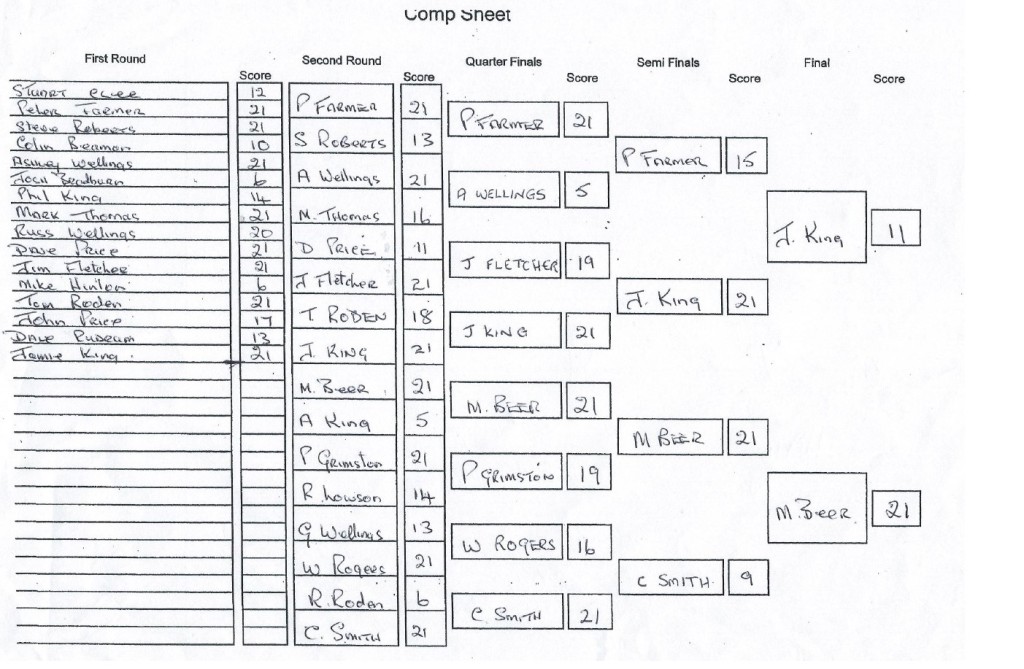 Comp Sheet
First Round Score Second Round Score Quarter Finals Score Semi Finals Score Final Score
Stuart 12
Peter Farmer 21
Steve Roberts 21
Colin Beaman 10
Ashley Wellings 21
6
Phil King 14
Mark Thomas 21
Russ Wellings 20
Dave Price 21
Jim Fletcher 21
Mike Hinton 6
Tom Roden 21
John Price 17
Dave 13
Jamie King 21
P FARMER 21
S ROBERTS 13
A Wellings 21
M. Thomas 16
D PRICE 11
J Fletcher 21
T RODEN 18
J. KING 21
M. BEER 21
A King 5
P Grimston 21
R. Lowson 14
G Wellings 13
W Rogers 21
R. Roden 6
C. SMITH 21
P FARMER 21
A WELLINGS 5
J FLETCHER 19
J KING 21
M. BEER 21
P GRIMSTON 19
W ROGERS 16
C. SMITH 21
P FARMER 15
J. King 21
M BEER 21
C SMITH 9
J. King 11
M. Beer 21